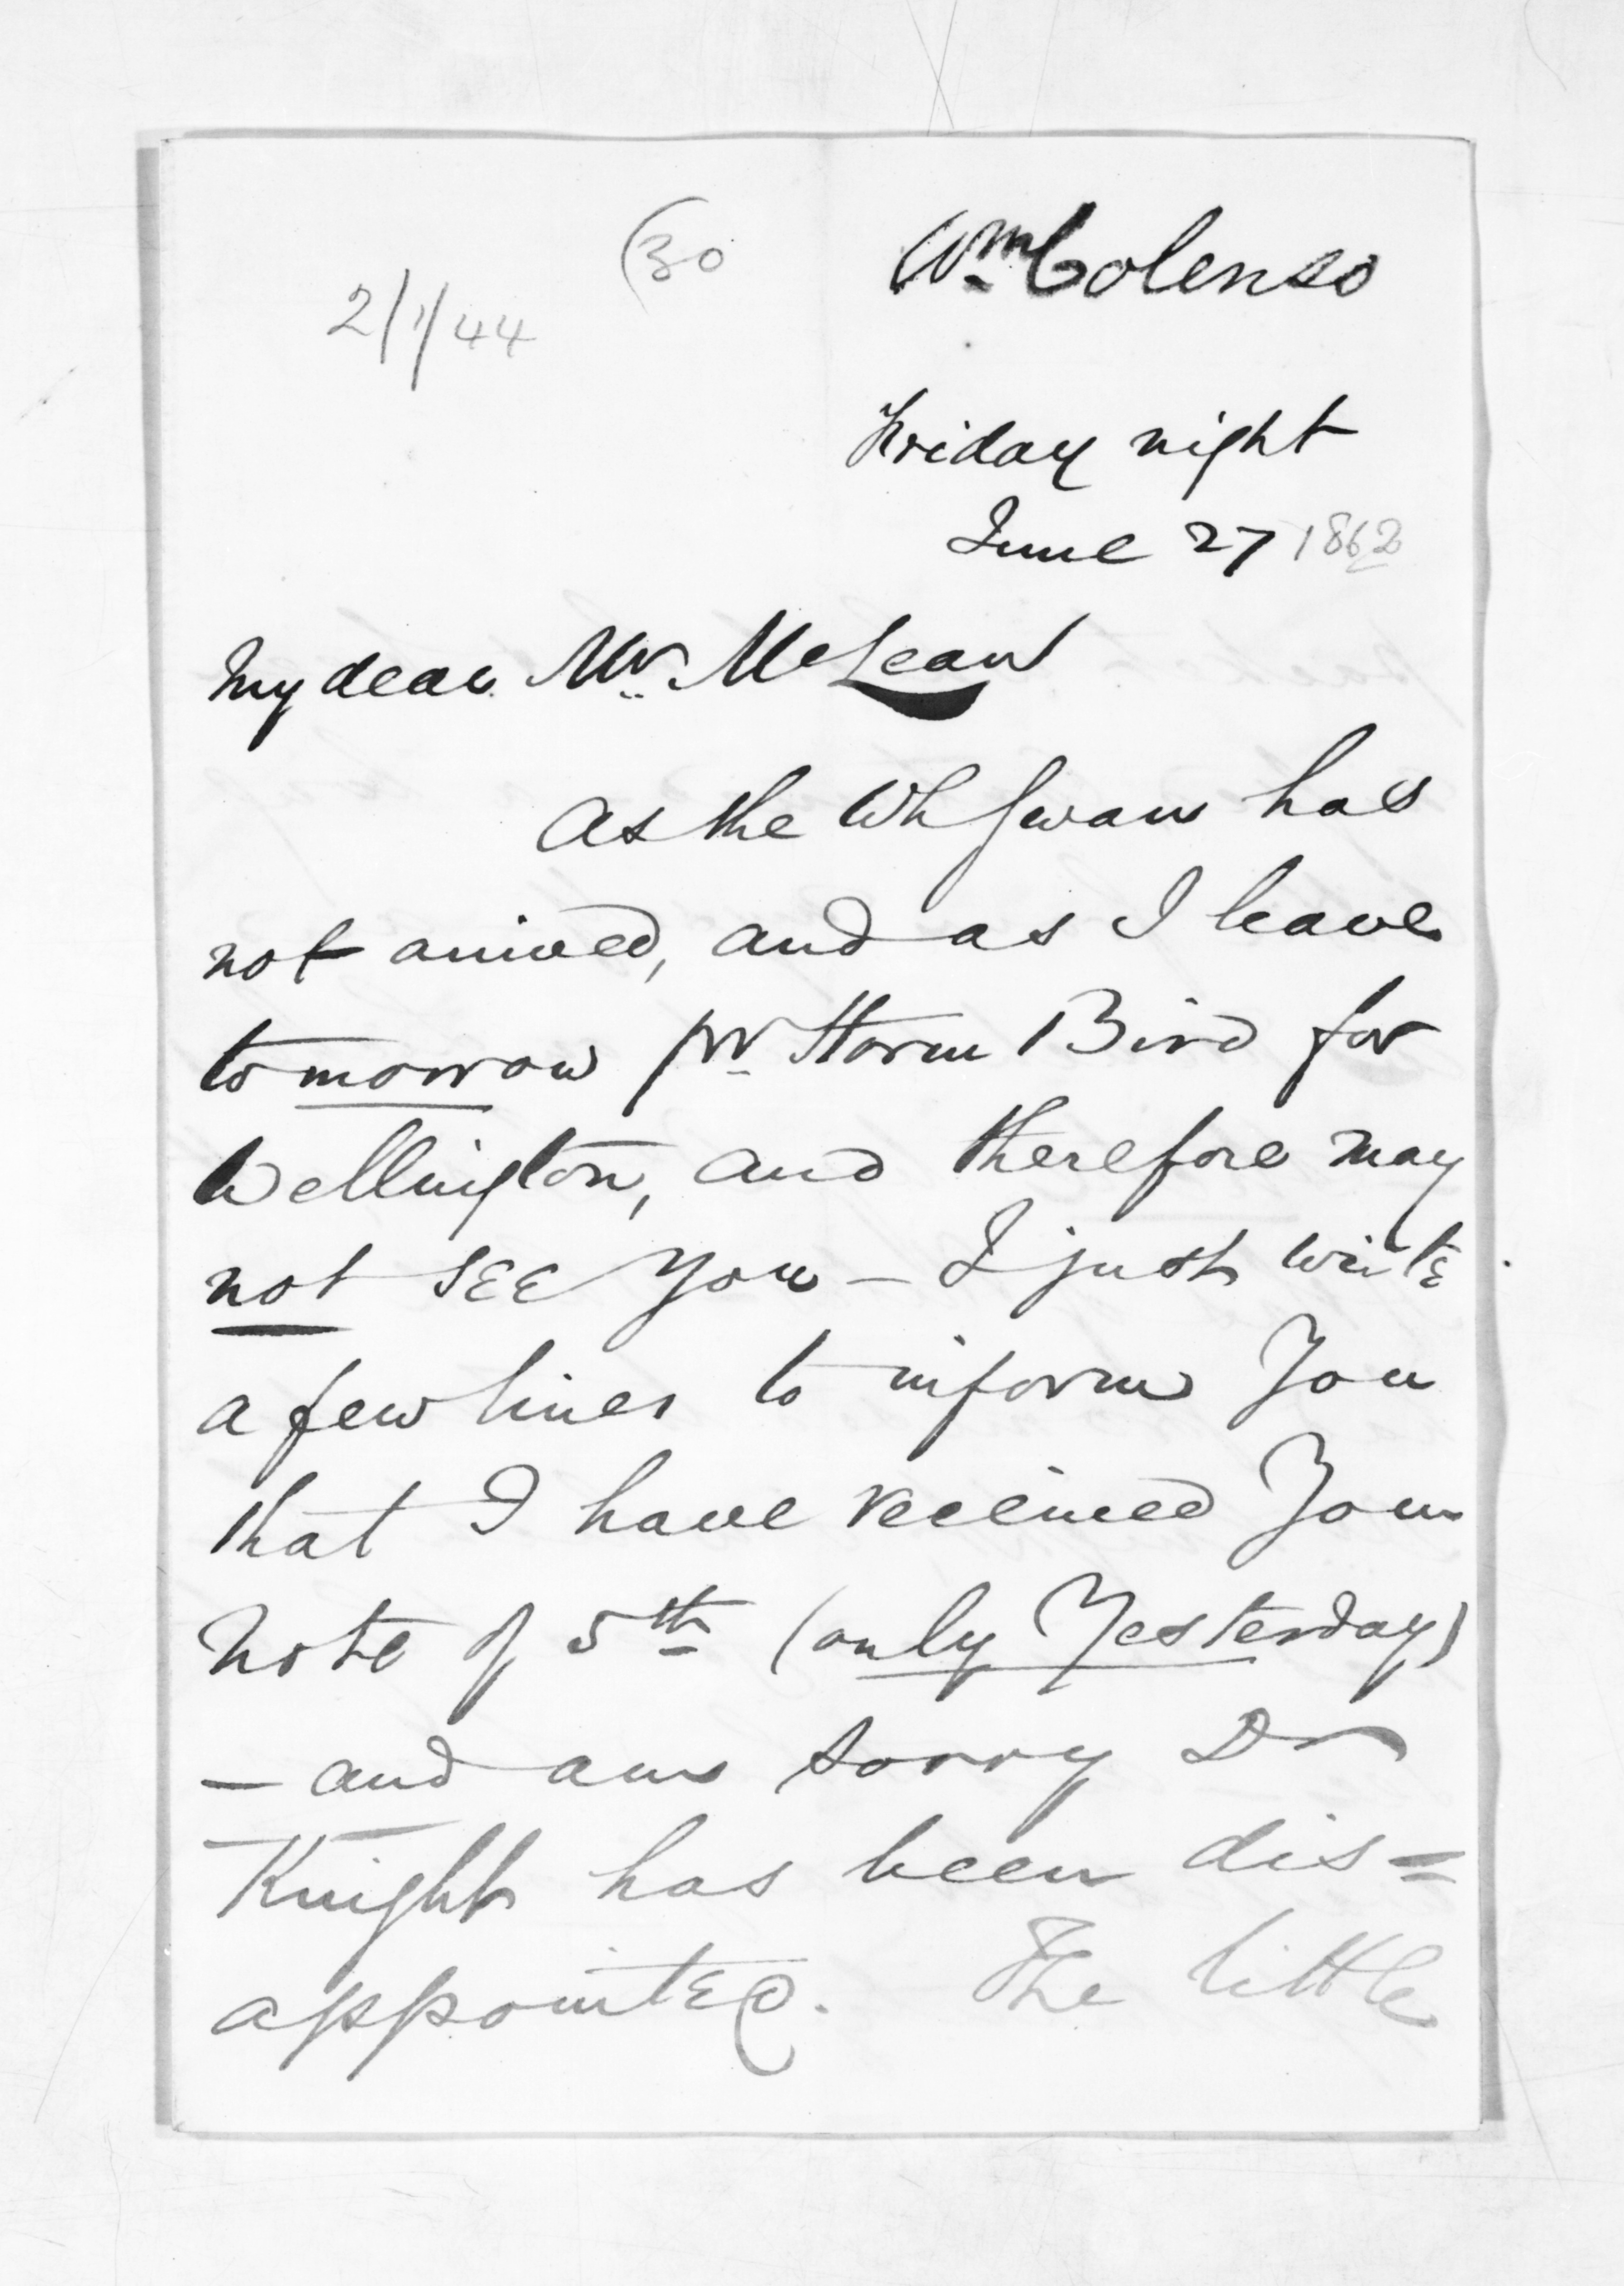 (30
Wm Colenso
2/1/44
Friday night
June 27 1862
My dear Mr. McLean
As the Wh Swan has
not arrived, and as I leave
tomorrow pr Storm Bird for
Wellington, and therefore may
not see you – I just write
a few lines to inform you
that I have received your
note of 5th (only yesterday)
– and am sorry Dr
Knight has been dis=
appointed. The little